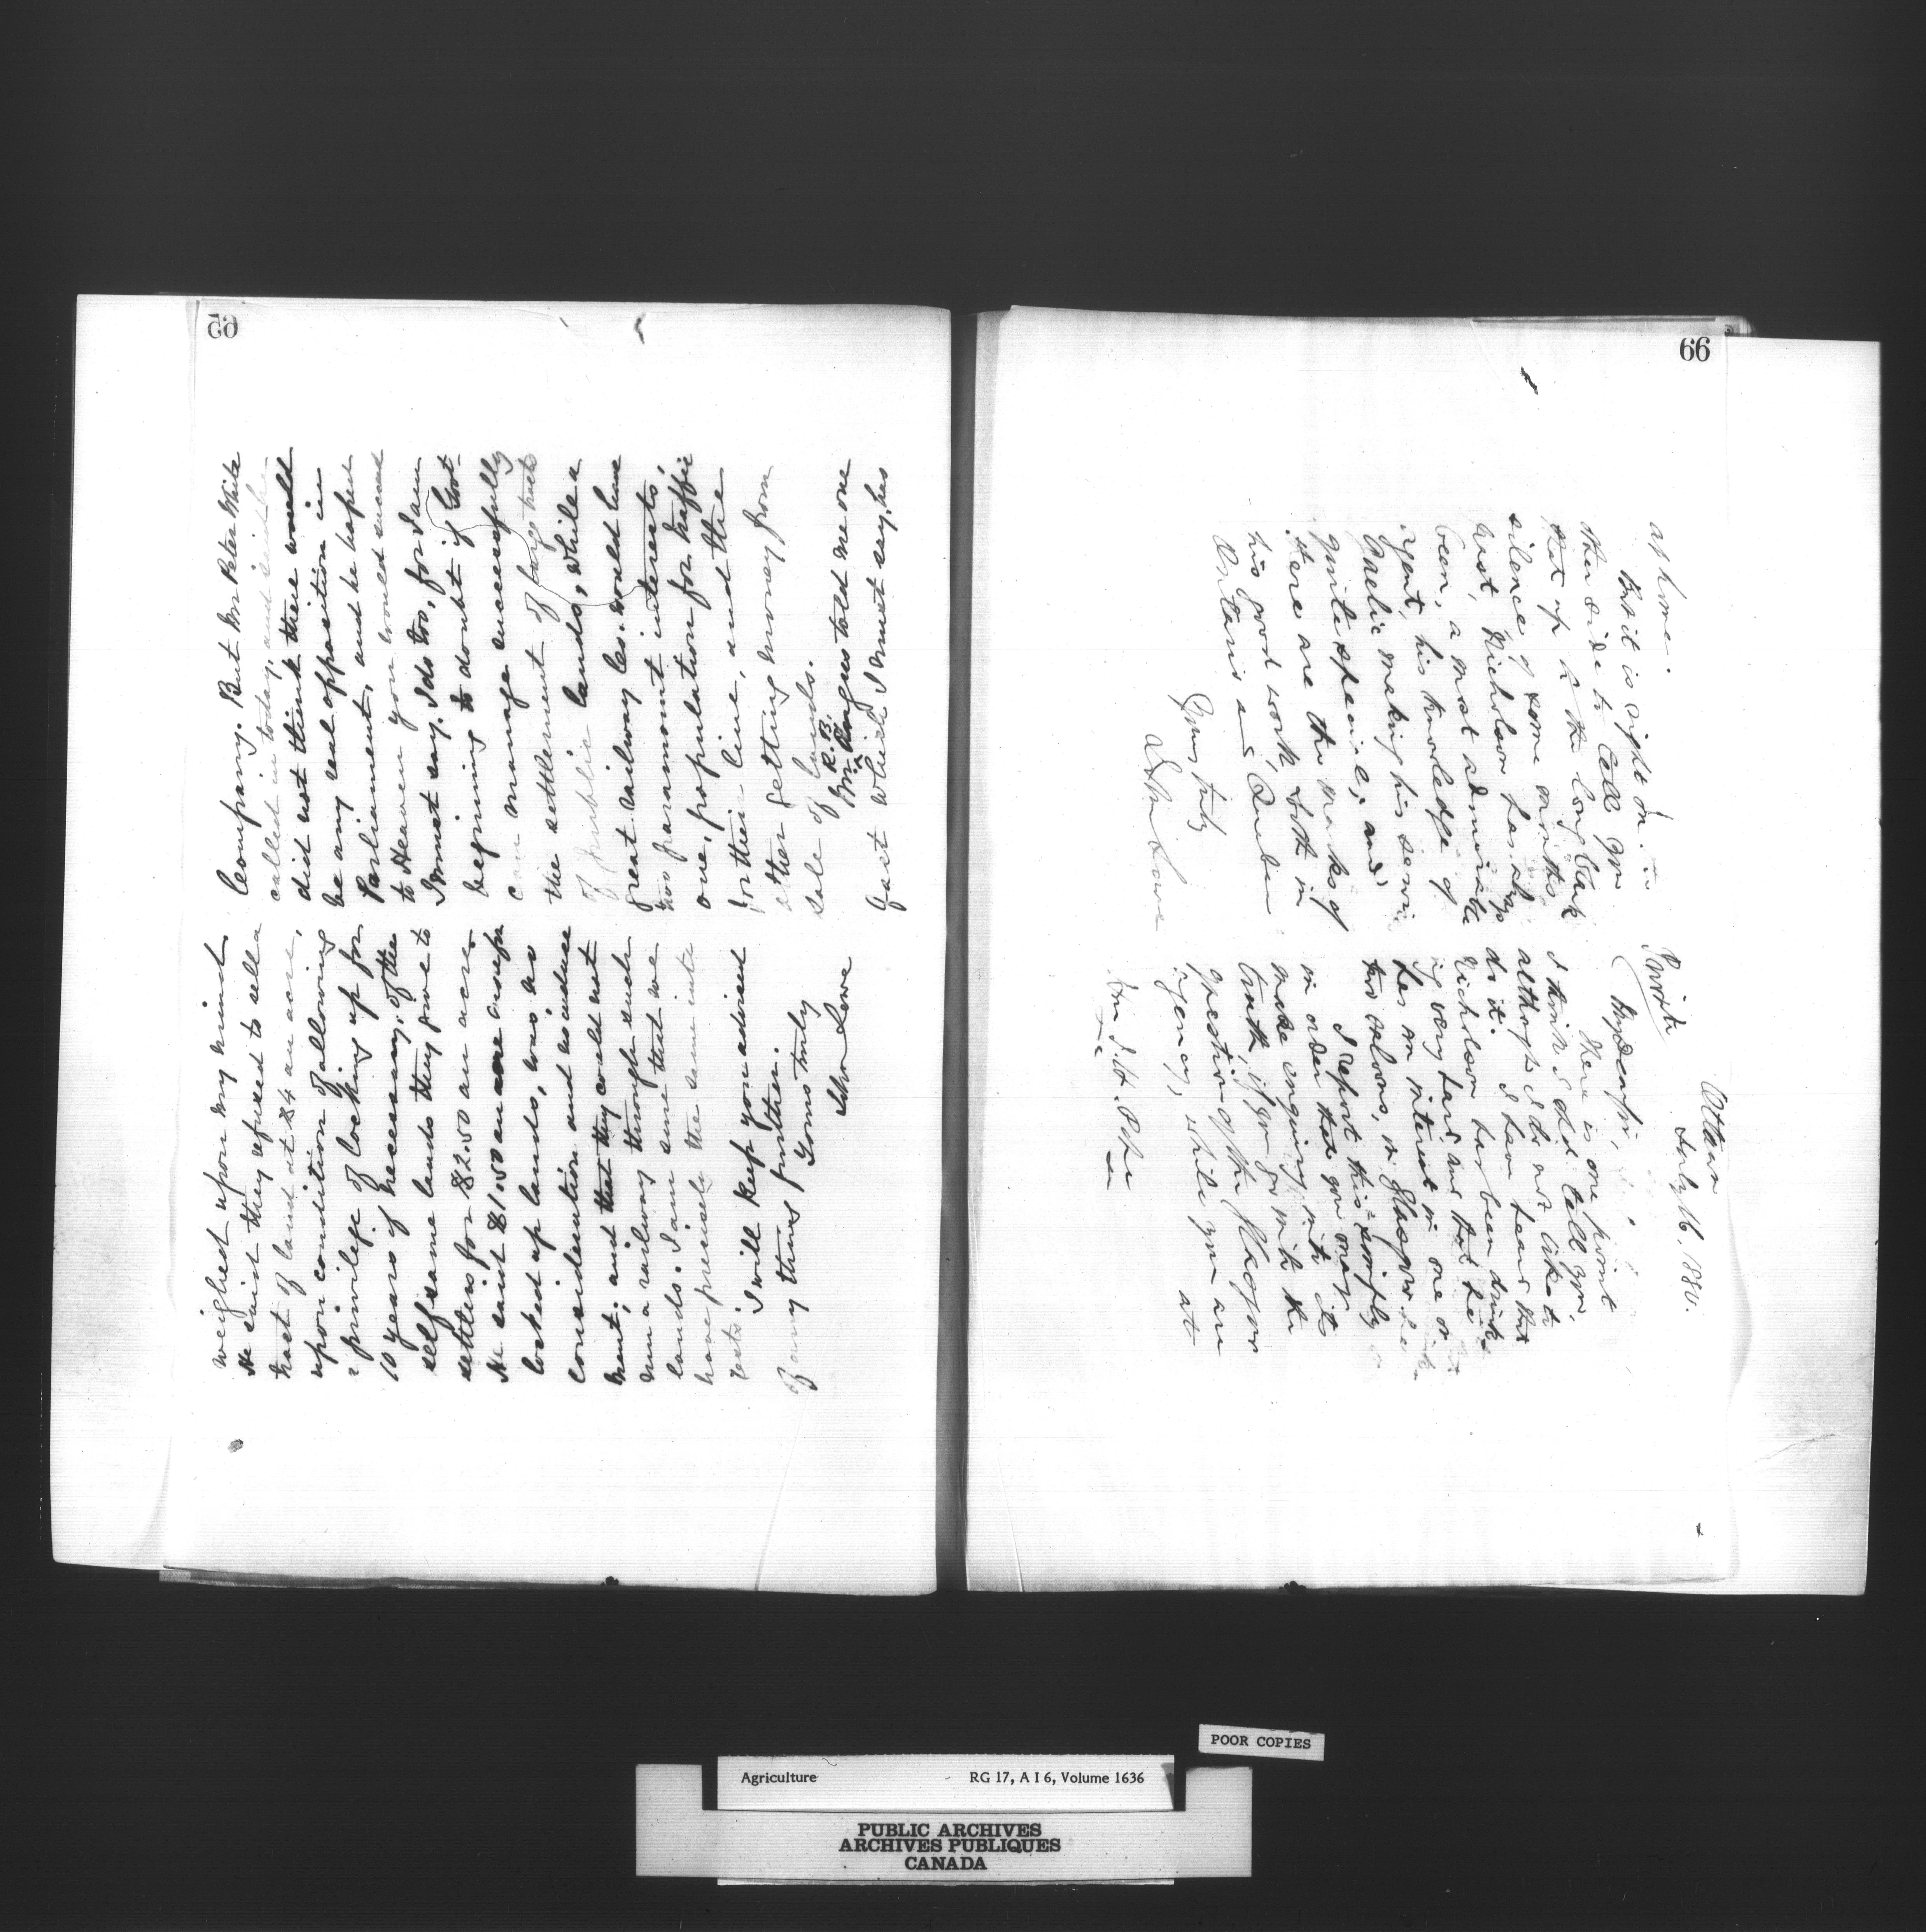 65
Company. But Mr Peter White
called in today, and said he
did not think there would
be any real opposition in
Parliament, and he hoped
to Heaven you would succeed
I must say. I do too, for I am
beginning to doubt if Govt
can manage successfully
the settlement of large tracts
of public lands, while a
great railway Co. would have
two paramount interests,
one, population for traffic
for the line, and the
other getting money from
sale of lands.
Mr R.B. Angus told me one
fact which I must say, has
weighed upon my mind
He said they refused to sell a
tract of land at $4 an acre,
upon condition of allowing
a privilege of locking up for
10 years if necessary, of the
self same lands they gave to
settlers for $2.50 an acre.
He said $1.50 an acre more for
locked up lands, was no
consideration and no induce
ment; and that they could not
run a railway through such
lands. I am sure that we
have precisely the same inte
rests.
I will keep you advised
if any thing further.
Yours truly
John Lowe
66
Ottawa
July 16, 1880.
Private
My dear Sir,
There is one point
I think I did tell you,
although I do not like to
do it. I have heard that
Nicholson has been drink
ing very hard and that he
has an interest in one or
two saloons, in Glasgow
I report this simply
in order that you may
make enquiry into its
truth, if you go into the
question of the Glasgow
agency, while you are
at
Hon J. H. Pope
at home.
But it is right on the
other side to tell you
that up to the long blank
silence of some months
past, Nicholson has always
been, a most admirable
agent, his knowledge of
Gaelic making his service
quite special; and
there are the marks of
his good work, both in
Ontario and Quebec
Yours truly
John Lowe
POOR COPIES
Agriculture RG 17, A I 6, Volume 1636
PUBLIC ARCHIVES
ARCHIVES PUBLIQUES
CANADA